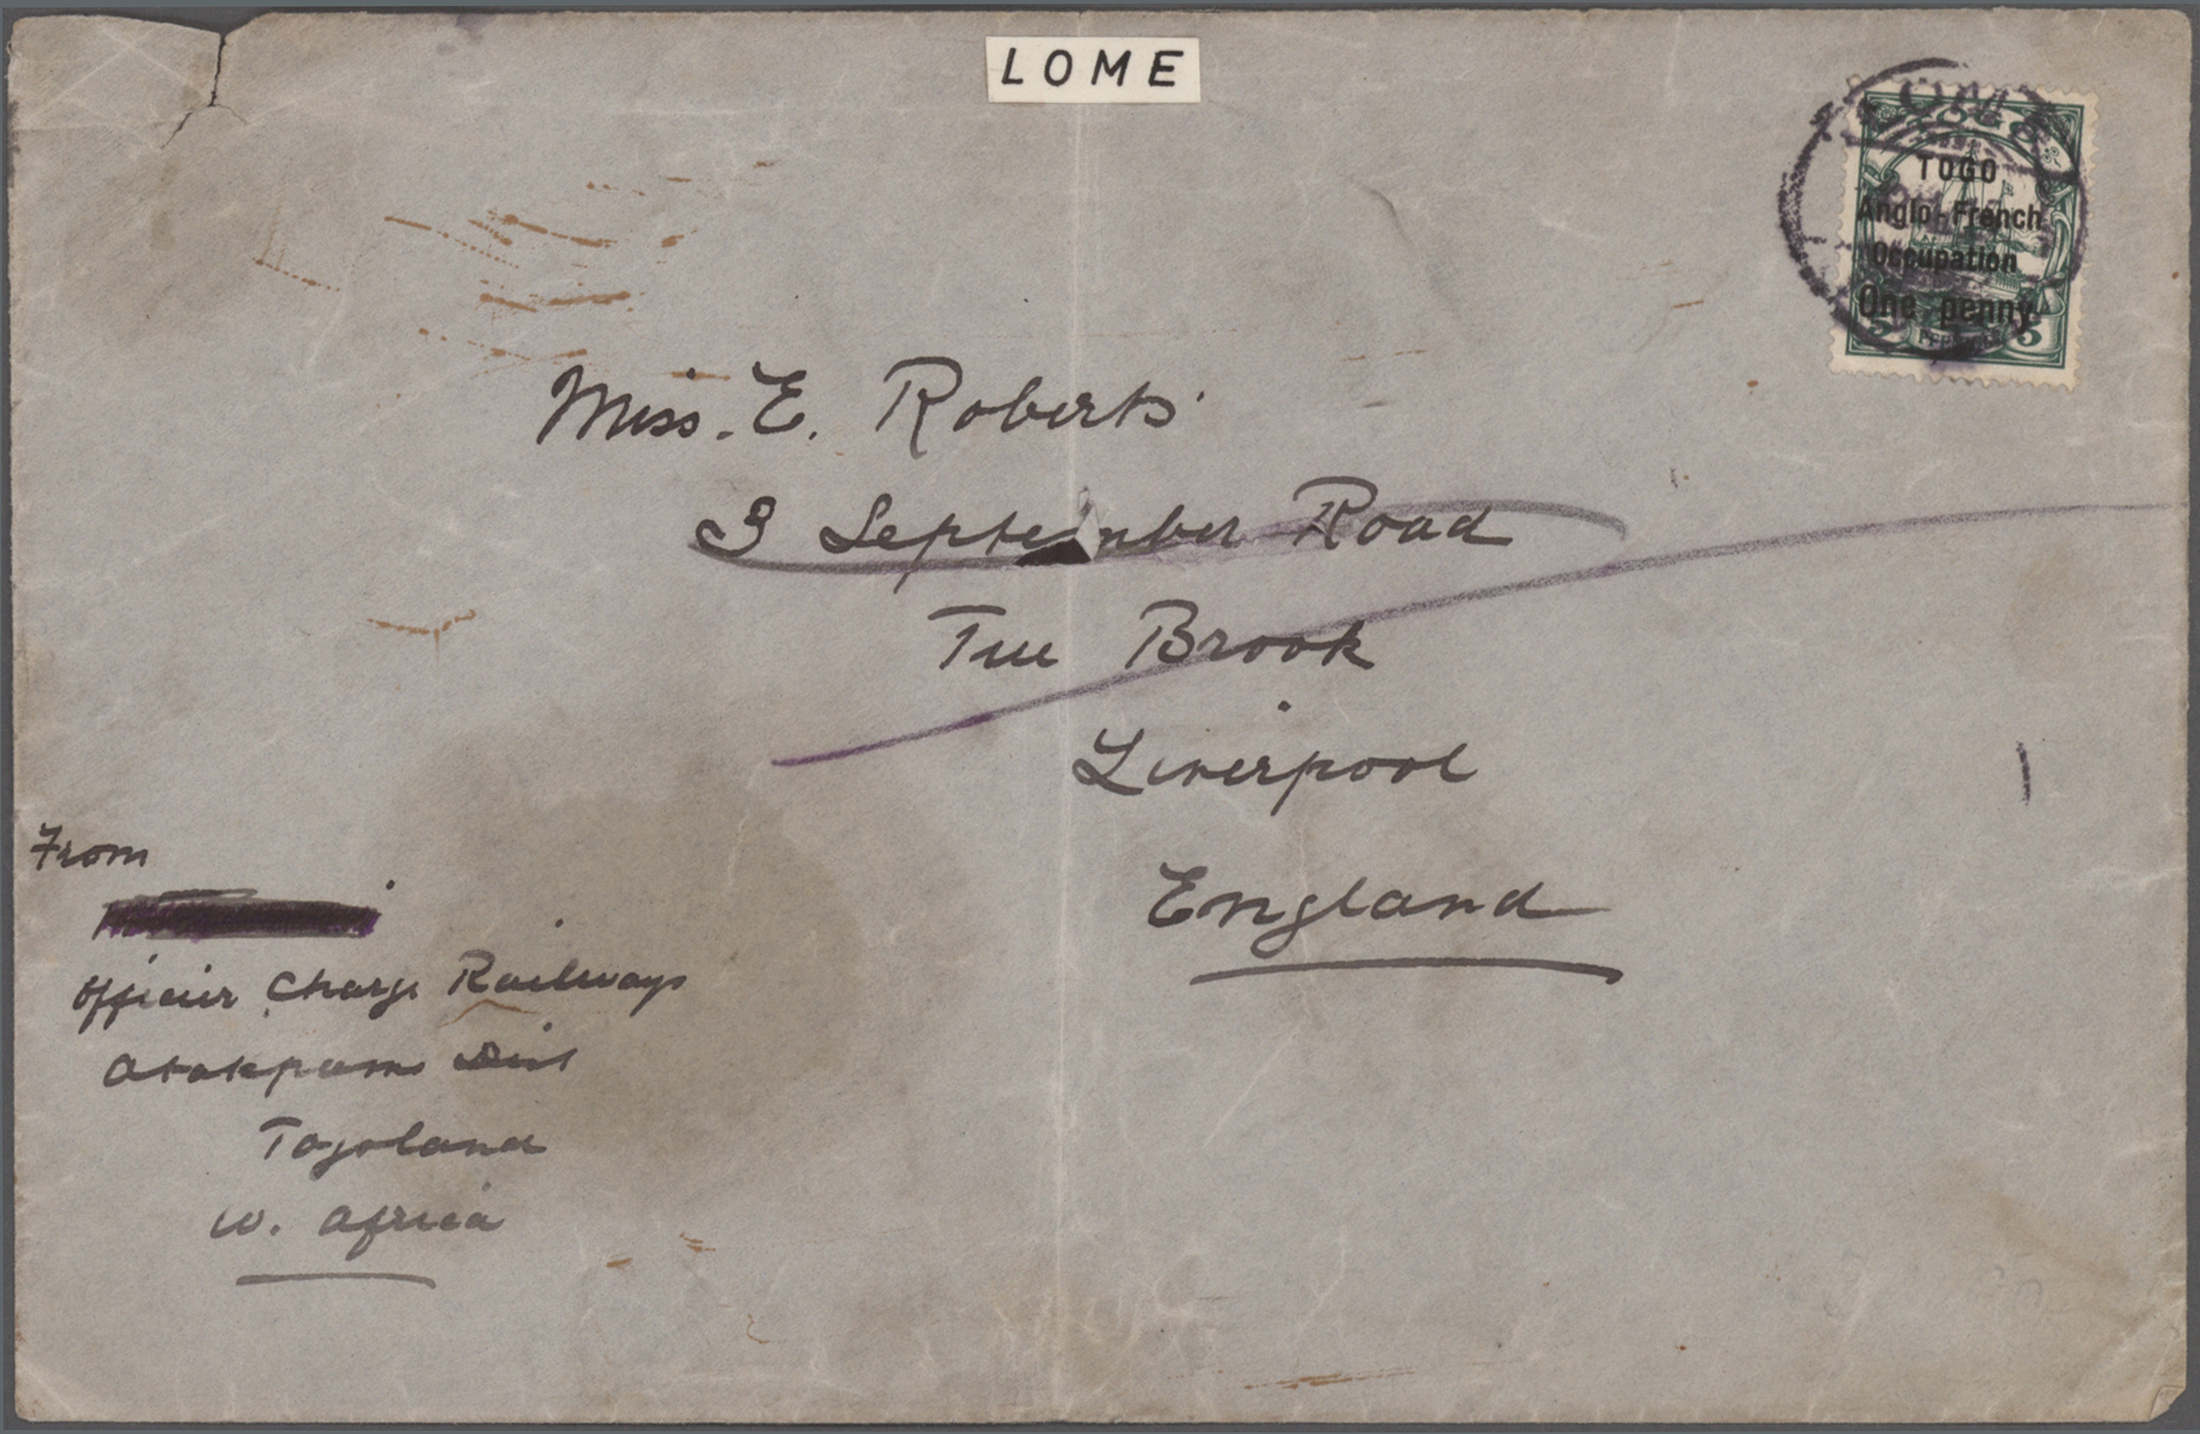 LOME
TOGO
TOGO
Anglo-French
Occupation
One penny
5 PFENNIG 5
Miss. E. Roberts
3 September Road
Tue Brook
Liverpool
England
From
Officier Charge Railways
Atakpame Dist
Togoland
W. Africa